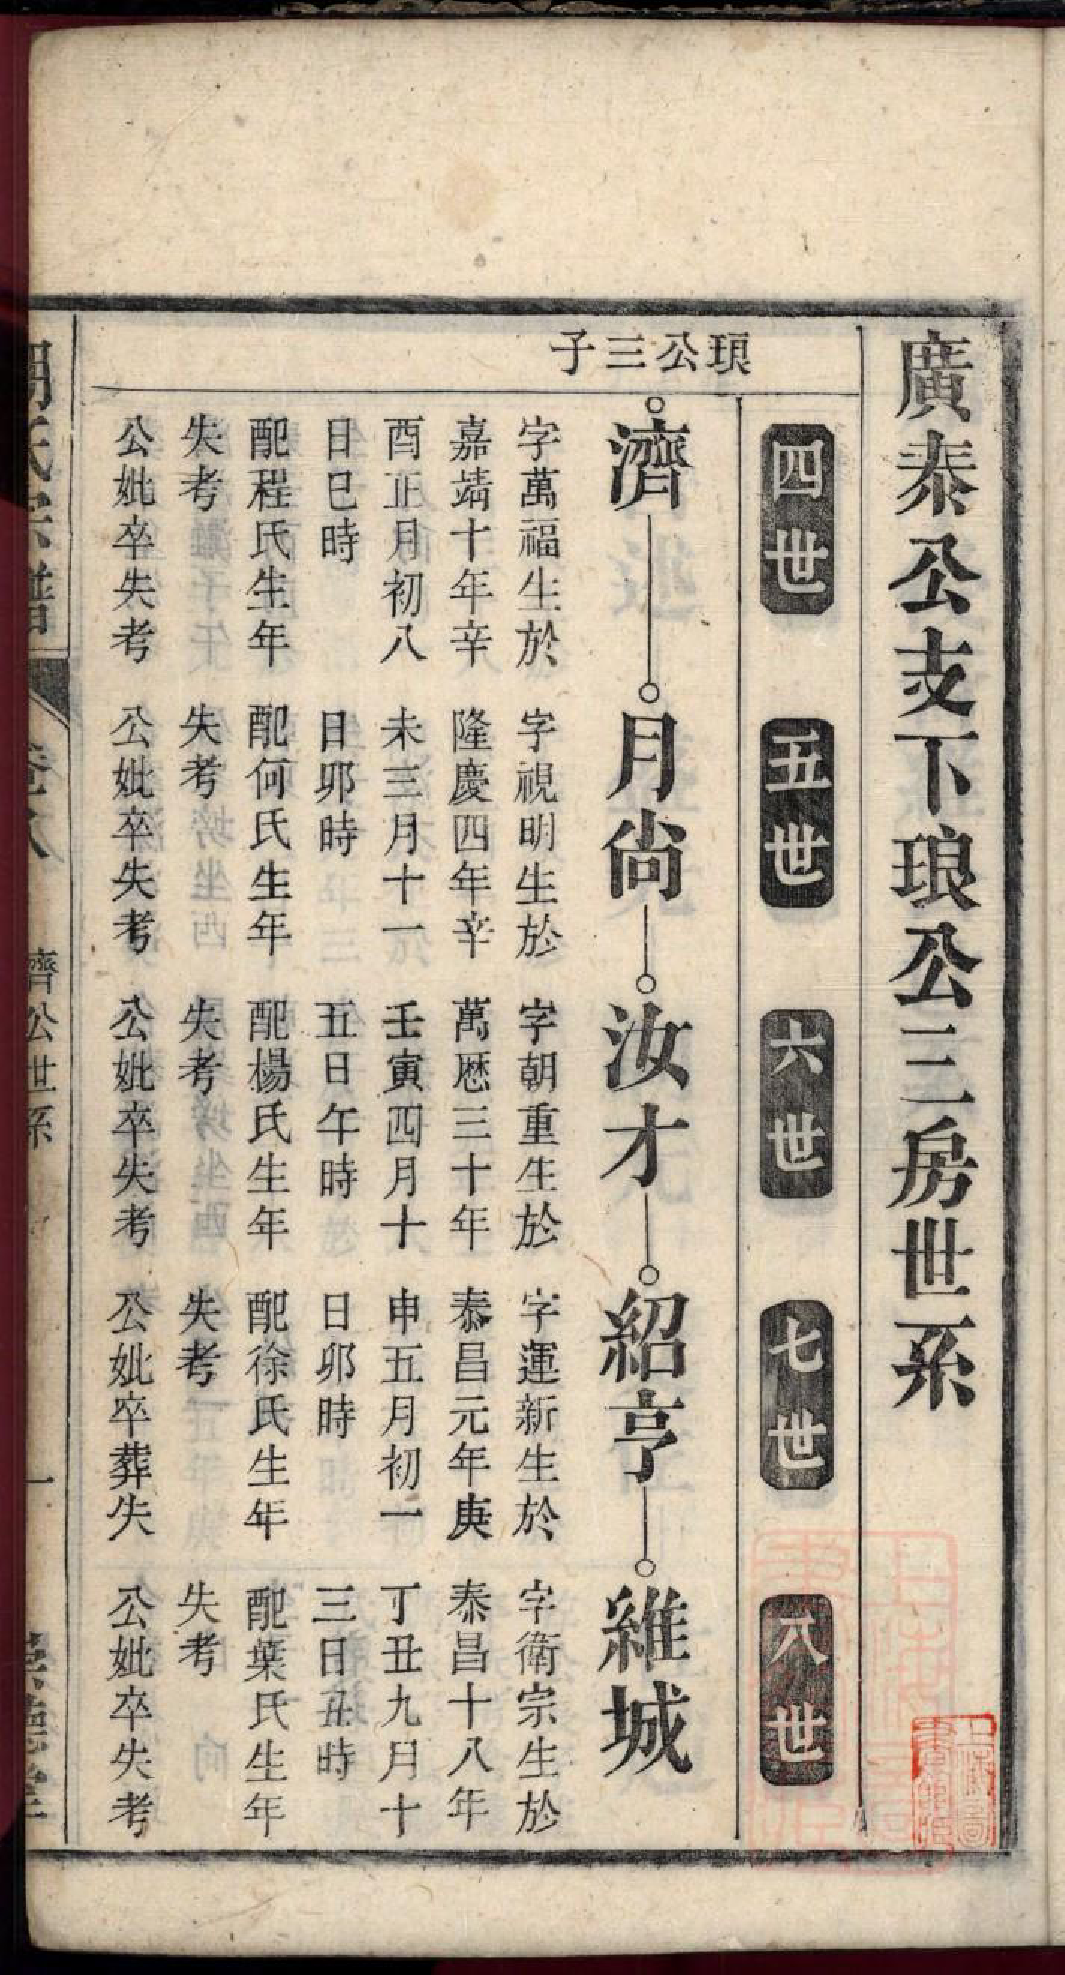 廣泰公支下琅公三房世系
四世
五世
六世
七世
八世
琅公三子
濟
字萬福生於
嘉靖十年辛
酉正月初八
日巳時
配程氏生年
失考
公妣卒失考
月尙
字視明生於
隆慶四年辛
未三月十一
日卯時
配何氏生年
失考
公妣卒失考
汝才
字朝重生於
萬厯三十年
壬寅四月十
五日午時
配楊氏生年
失考
公妣卒失考
紹亨
字運新生於
泰昌元年庚
申五月初一
日卯時
配徐氏生年
失考
公妣卒葬失
維城
字衛宗生於
泰昌十八年
丁丑九月十
三日丑時
配葉氏生年
失考
公妣卒失考
濟公世系
一